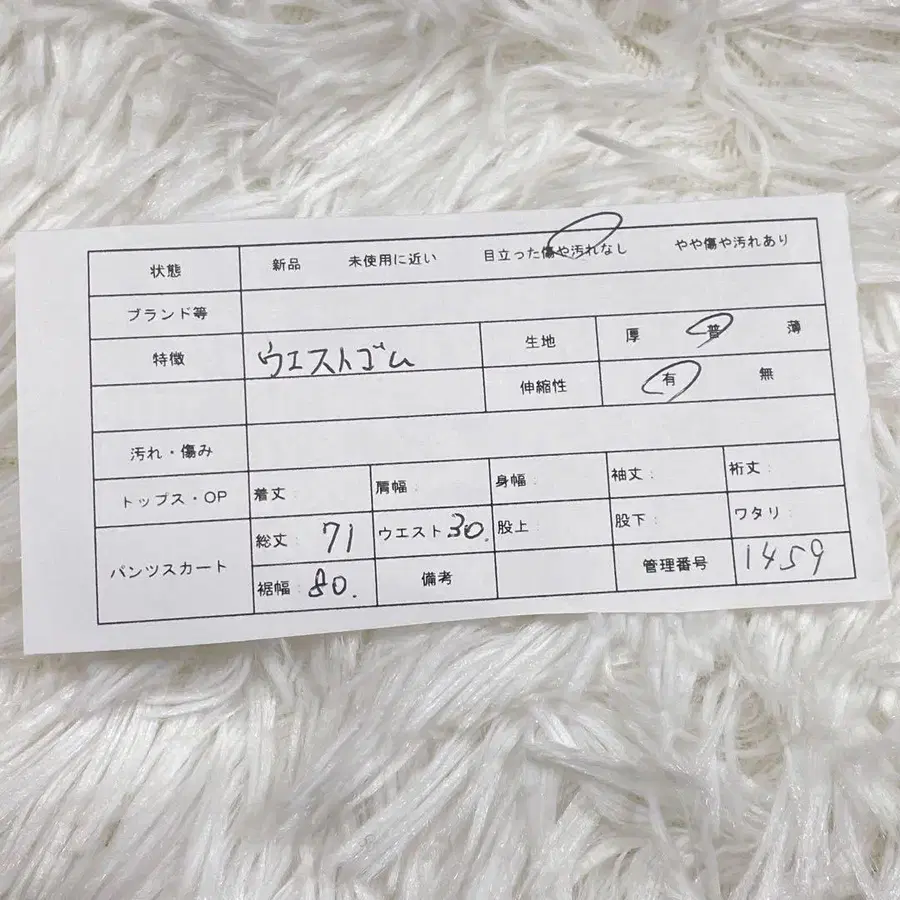 状態 新品 未使用に近い 目立った傷や汚れなし やや傷や汚れあり
ブランド等
特徴 ウエストゴム 生地 厚 普 薄
伸縮性 有 無
汚れ・傷み
トップス・OP 着丈: 肩幅: 身幅: 袖丈: 裄丈:
パンツスカート 総丈: 71 ウエスト 30. 股上: 股下: ワタリ:
裾幅: 80. 備考 管理番号 1459